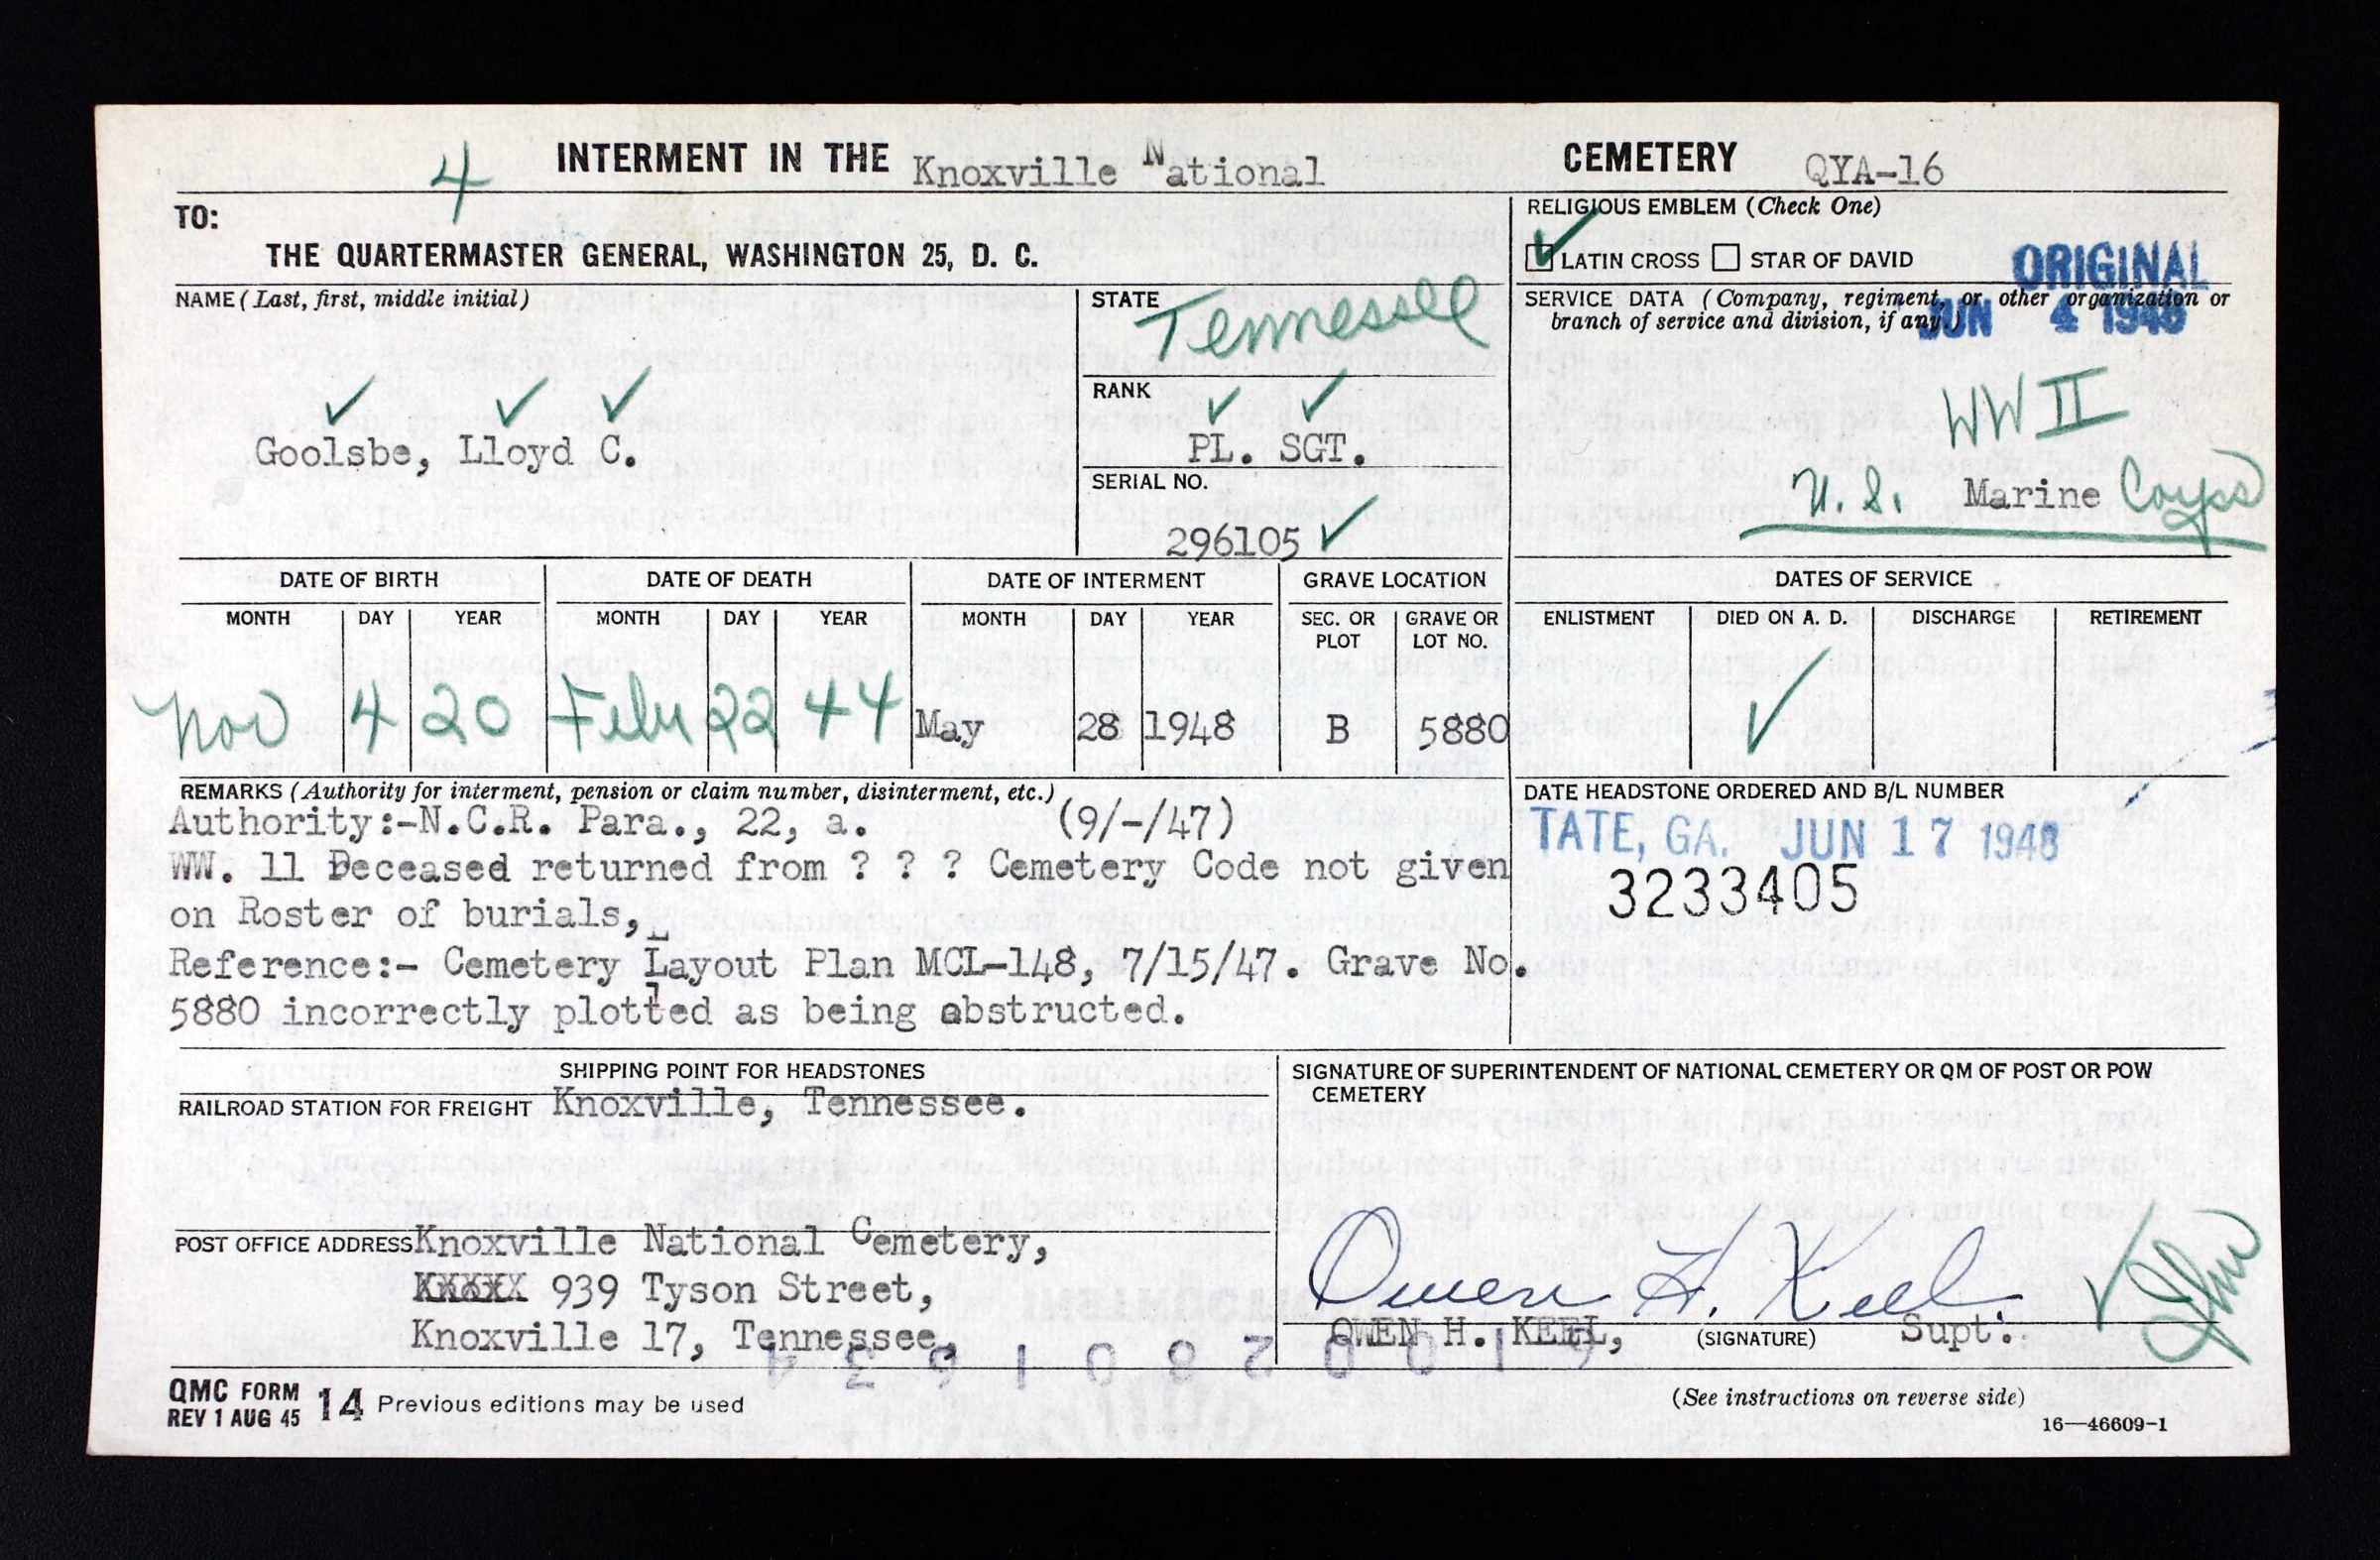 4 INTERMENT IN THE Knoxville National CEMETERY QYA-16
TO:
THE QUARTERMASTER GENERAL, WASHINGTON 25, D. C.
RELIGIOUS EMBLEM (Check One)
LATIN CROSS STAR OF DAVID
ORIGINAL
JUN 4 1948
NAME (Last, first, middle initial)
Goolsbe, Lloyd C.
STATE
Tennessee
RANK
PL. SGT.
SERIAL NO.
296105
SERVICE DATA (Company, regiment, or other organization or
branch of service and division, if any.)
WW II
U.S. Marine Corps
DATE OF BIRTH DATE OF DEATH DATE OF INTERMENT GRAVE LOCATION DATES OF SERVICE
MONTH DAY YEAR MONTH DAY YEAR MONTH DAY YEAR SEC. OR PLOT GRAVE OR LOT NO. ENLISTMENT DIED ON A. D. DISCHARGE RETIREMENT
Nov 4 20 Febr 22 44 May 28 1948 B 5880
REMARKS (Authority for interment, pension or claim number, disinterment, etc.)
Authority:-N.C.R. Para., 22, a. (9/-/47)
WW. 11 Deceased returned from ? ? ? Cemetery Code not given
on Roster of burials,
Reference:- Cemetery Layout Plan MCL-148, 7/15/47. Grave No.
5880 incorrectly plotted as being obstructed.
DATE HEADSTONE ORDERED AND B/L NUMBER
TATE, GA. JUN 17 1948
3233405
SHIPPING POINT FOR HEADSTONES
RAILROAD STATION FOR FREIGHT Knoxville, Tennessee.
POST OFFICE ADDRESS Knoxville National Cemetery,
939 Tyson Street,
Knoxville 17, Tennessee,
SIGNATURE OF SUPERINTENDENT OF NATIONAL CEMETERY OR QM OF POST OR POW
CEMETERY
Owen H. Keel
OWEN H. KEEL, (SIGNATURE) Supt.
QMC FORM 14 Previous editions may be used
REV 1 AUG 45
(See instructions on reverse side)
16—46609-1